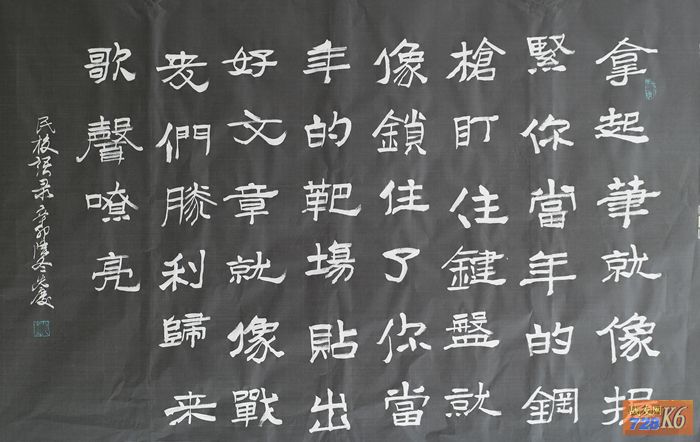 拿起筆就像握
緊你當年的鋼
槍盯住鍵盤就
像鎖住了你當
年的靶場貼出
好文章就像戰
友們勝利歸来
歌聲嘹亮
民校语录 辛卯
战友网
72B K6